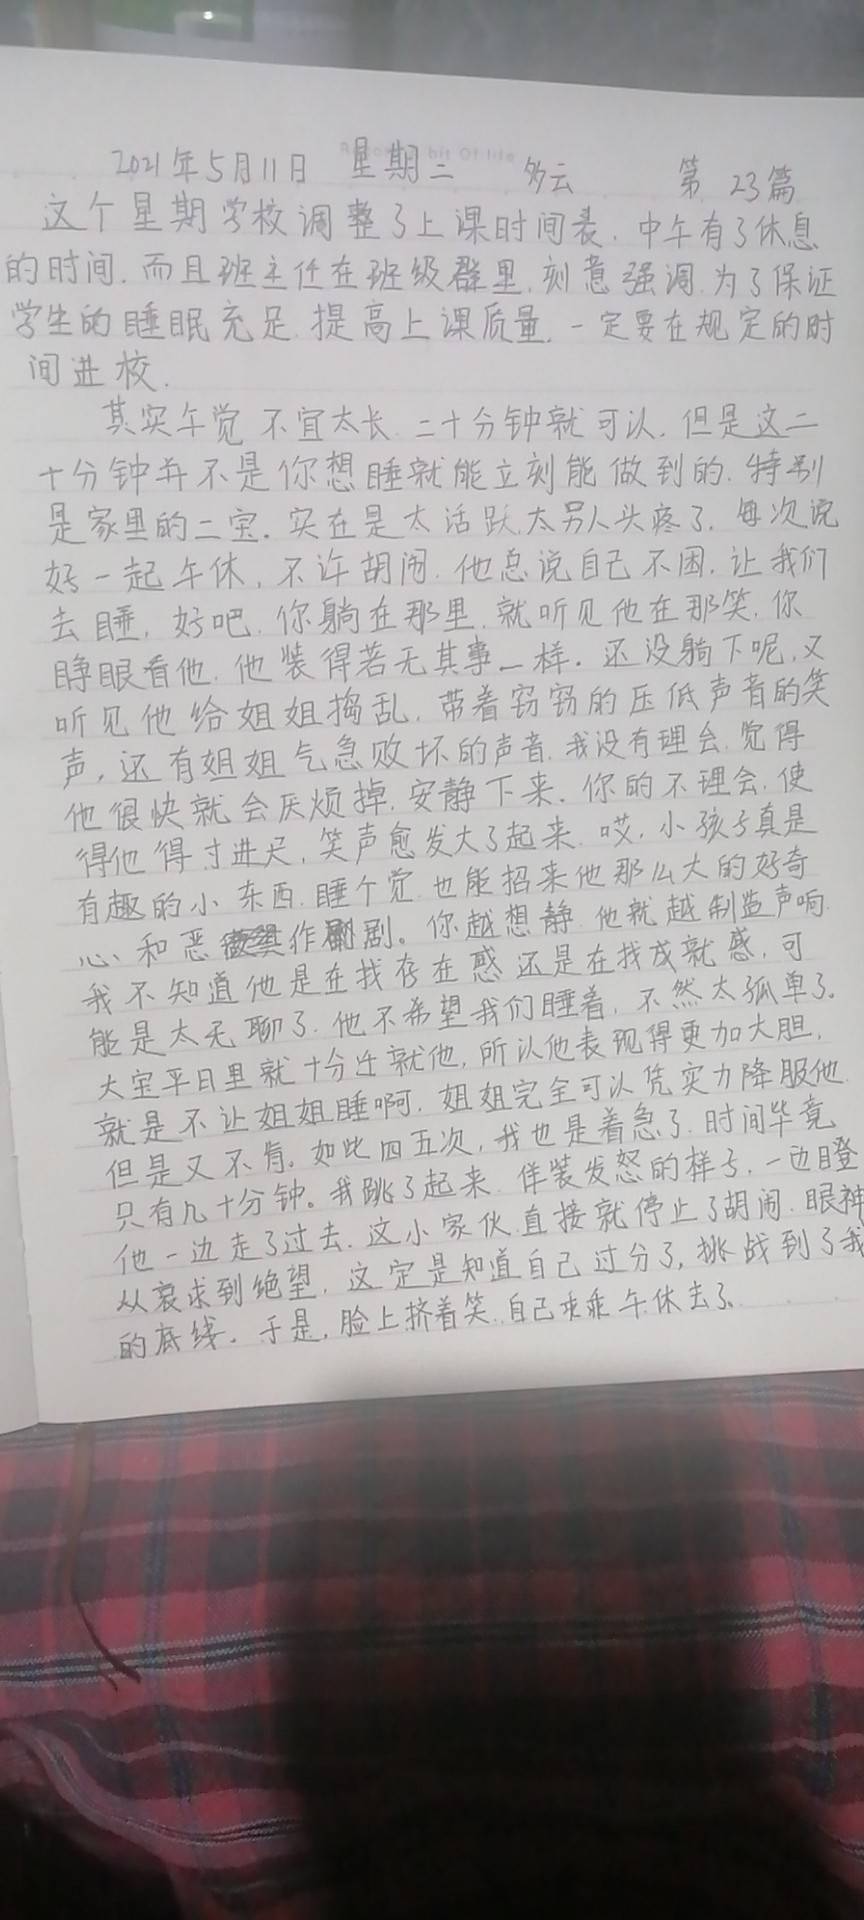 2021年5月11日 星期二 多云 第23篇
这个星期学校调整了上课时间表.中午有了休息
的时间.而且班主任在班级群里.刻意强调.为了保证
学生的睡眠充足.提高上课质量.一定要在规定的时
间进校.
其实午觉不宜太长.二十分钟就可以.但是这二
十分钟并不是你想睡就能立刻能做到的.特别
是家里的二宝.实在是太活跃太另人头疼了.每次说
好一起午休,不许胡闹.他总说自己不困.让我们
去睡,好吧.你躺在那里.就听见他在那笑.你
睁眼看他.他装得若无其事一样.还没躺下呢,又
听见他给姐姐捣乱.带着窃窃的压低声音的笑
声,还有姐姐气急败坏的声音.我没有理会.觉得
他很快就会厌烦掉.安静下来.你的不理会.使
得他得寸进尺,笑声愈发大了起来.哎,小孩子真是
有趣的小东西.睡个觉也能招来他那么大的好奇
心、和恶作剧。你越想静.他就越制造声响.
我不知道他是在找存在感还是在找成就感,可
能是太无聊了.他不希望我们睡着,不然太孤单了.
大宝平日里就十分迁就他,所以他表现得更加大胆,
就是不让姐姐睡啊,姐姐完全可以凭实力降服他.
但是又不肯。如此四五次,我也是着急了.时间毕竟
只有几十分钟。我跳了起来.佯装发怒的样子,一边瞪
他一边走了过去.这小家伙直接就停止了胡闹.眼神
从哀求到绝望,这定是知道自己过分了,挑战到了我
的底线.于是,脸上挤着笑.自己乖乖午休去了.